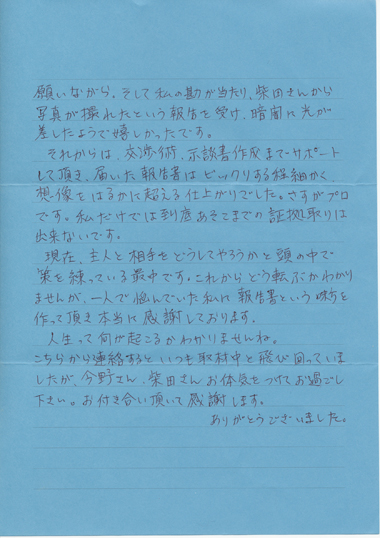 願いながら、そして私の勘が当たり、柴田さんから
写真が撮れたという報告を受け、暗闇に光が
差したようで嬉しかったです。
それからは、交渉術、示談書作成までサポート
して頂き、届いた報告書はビックリする程細かく、
想像をはるかに超える仕上がりでした。さすがプロ
です。私だけでは到底あそこまでの証拠取りは
出来ないです。
現在、主人と相手をどうしてやろうかと頭の中で
策を練っている最中です。これからどう転ぶかわかり
ませんが、一人で悩んでいた私に報告書という味方を
作って頂き本当に感謝しております。
人生って何が起こるかわかりませんね。
こちらから連絡するといつも取材中と飛び回っていま
したが、今野さん、柴田さんお体気をつけてお過ごし
下さい。お付き合い頂いて感謝します。
ありがとうございました。